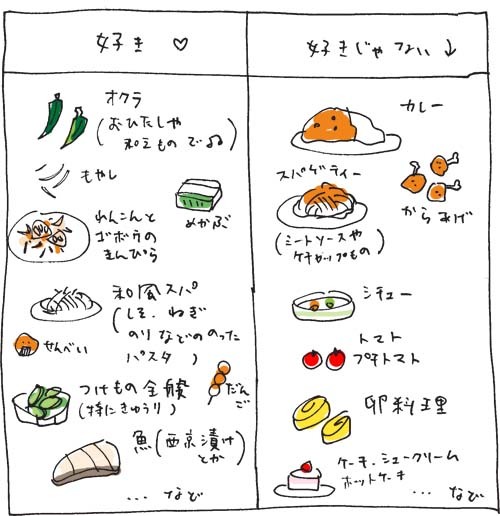 好き ♡
オクラ
(おひたしや
和えもので♫)
もやし
めかぶ
れんこんと
ゴボウの
きんぴら
和風スパ
(しそ、ねぎ
のりなどののった
パスタ)
せんべい
つけもの全般
(特にきゅうり)
だんご
魚(西京漬け
とか)
... など
好きじゃない ↓
カレー
スパゲティー
(ミートソースや
ケチャップもの)
からあげ
シチュー
トマト
プチトマト
卵料理
ケーキ、シュークリーム
ホットケーキ
... など